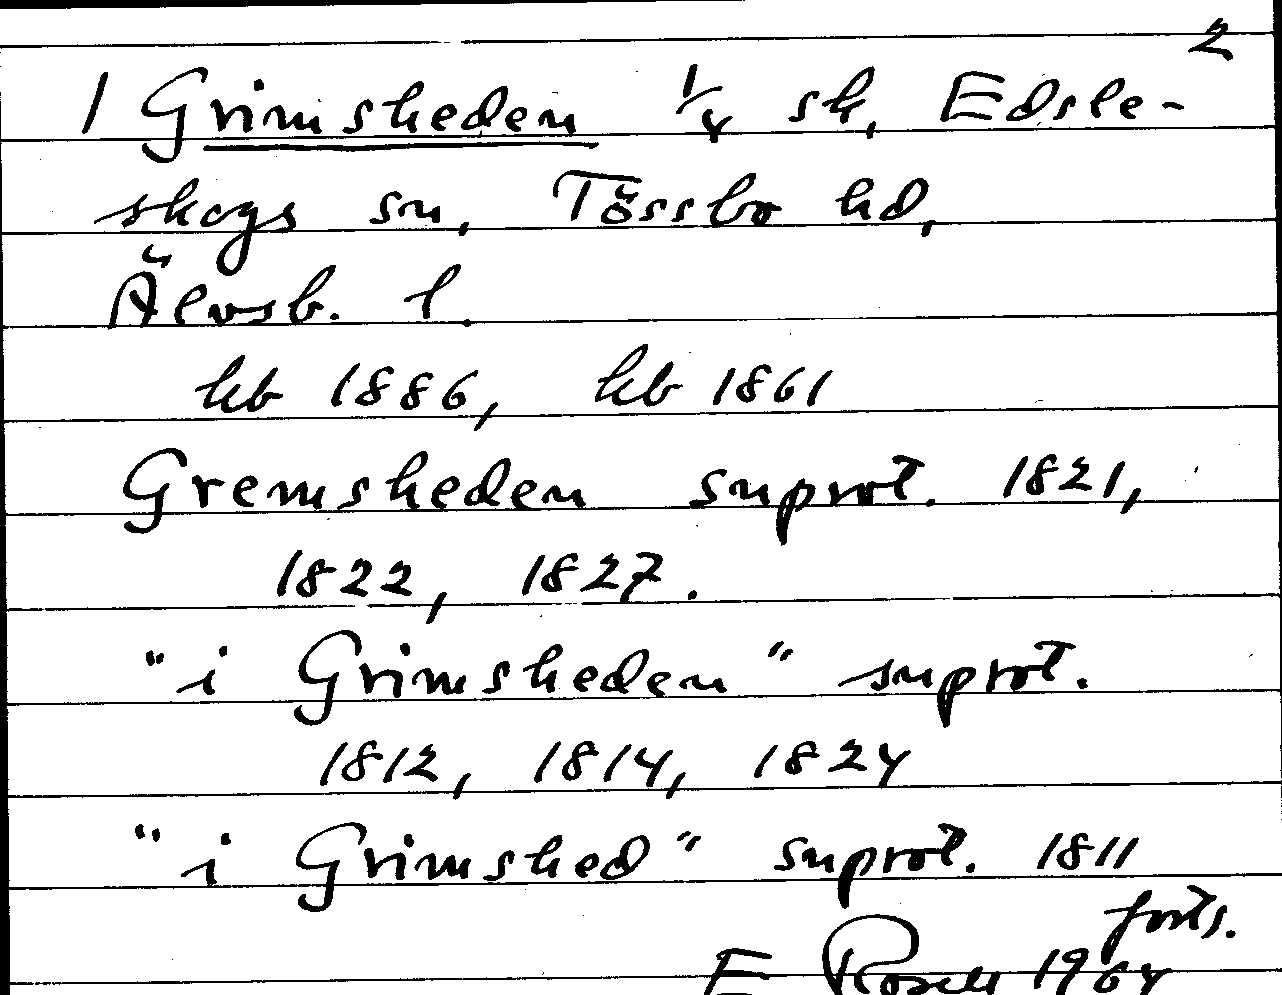 2
1 Grimsheden 1/4 sk, Edsle-
skogs sn, Tössbo hd,
Älvsb. l.
hb 1886, hb 1861
Gremsheden snprot. 1821,
1822, 1827.
"i Grimsheden" snprot.
1812, 1814, 1824
"i Grimshed" snprot. 1811
forts.
E Rosell 1964